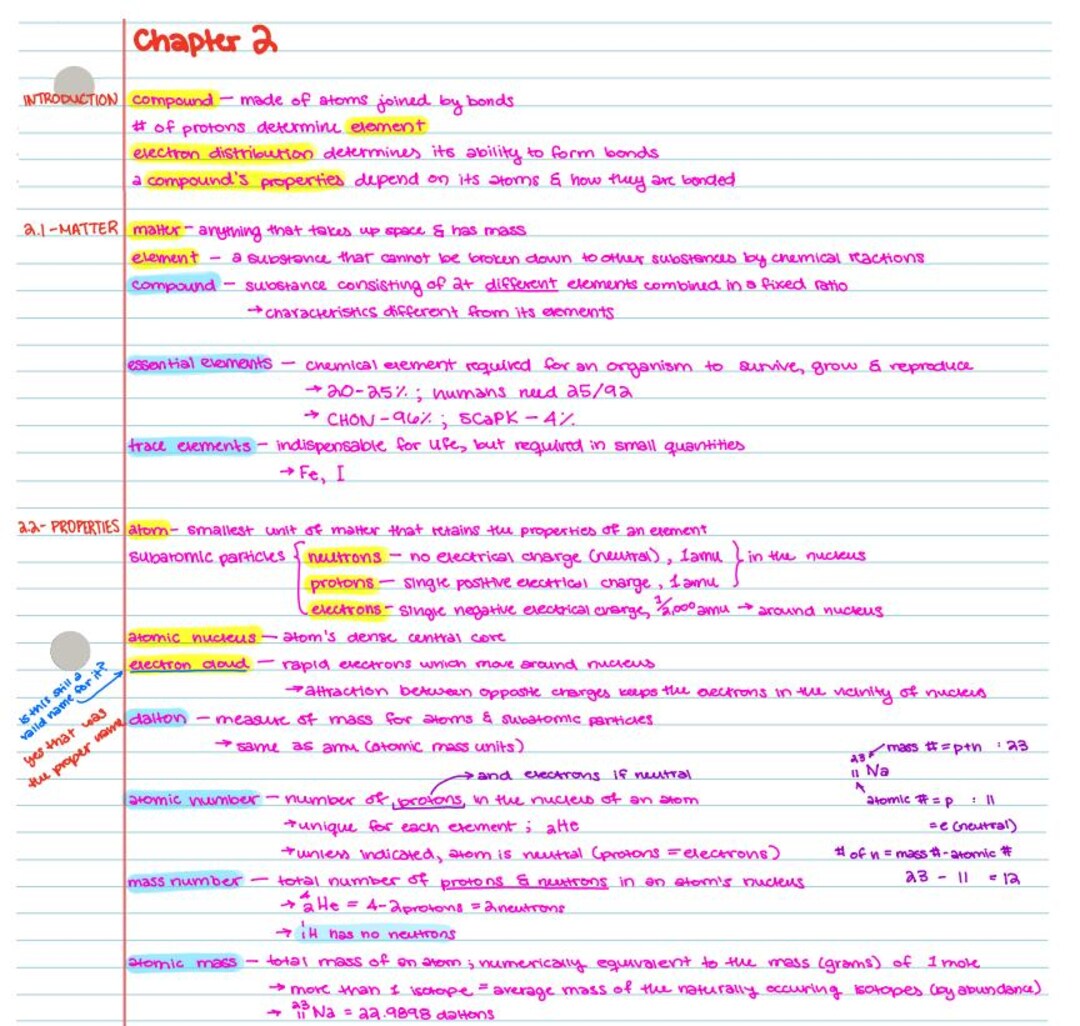 Chapter 2
INTRODUCTION compound – made of atoms joined by bonds
# of protons determine element
electron distribution determines its ability to form bonds
a compound's properties depend on its atoms & how they are bonded
2.1-MATTER matter - anything that takes up space & has mass
element - a substance that cannot be broken down to other substances by chemical reactions
compound - substance consisting of 2+ different elements combined in a fixed ratio
→ characteristics different from its elements
essential elements - chemical element required for an organism to survive, grow & reproduce
→ 20-25% ; humans need 25/92
→ CHON - 96% ; SCaPK - 4%
trace elements - indispensable for life, but required in small quantities
→ Fe, I
2.2- PROPERTIES atom - smallest unit of matter that retains the properties of an element
subatomic particles { neutrons - no electrical charge (neutral), 1amu } in the nucleus
protons - single positive electrical charge, 1 amu
electrons - single negative electrical charge, 1/2,000 amu → around nucleus
atomic nucleus - atom's dense central core
electron cloud - rapid electrons which move around nucleus
is this still a
valid name for it?
yes that was
the proper name
→ attraction between opposite charges keeps the electrons in the vicinity of nucleus
dalton - measure of mass for atoms & subatomic particles
→ same as amu (atomic mass units)
→ and electrons if neutral
atomic number - number of protons in the nucleus of an atom
→ unique for each element ; ₂He
→ unless indicated, atom is neutral (protons = electrons)
mass # = p+n : 23
²³₁₁Na
atomic # = p : 11
= e (neutral)
# of n = mass # - atomic #
23 - 11 = 12
mass number - total number of protons & neutrons in an atom's nucleus
→ ⁴₂He = 4-2protons = 2neutrons
→ ¹H has no neutrons
atomic mass - total mass of an atom ; numerically equivalent to the mass (grams) of 1 mole
→ more than 1 isotope = average mass of the naturally occuring isotopes (by abundance)
→ ²³₁₁Na = 22.9898 daltons